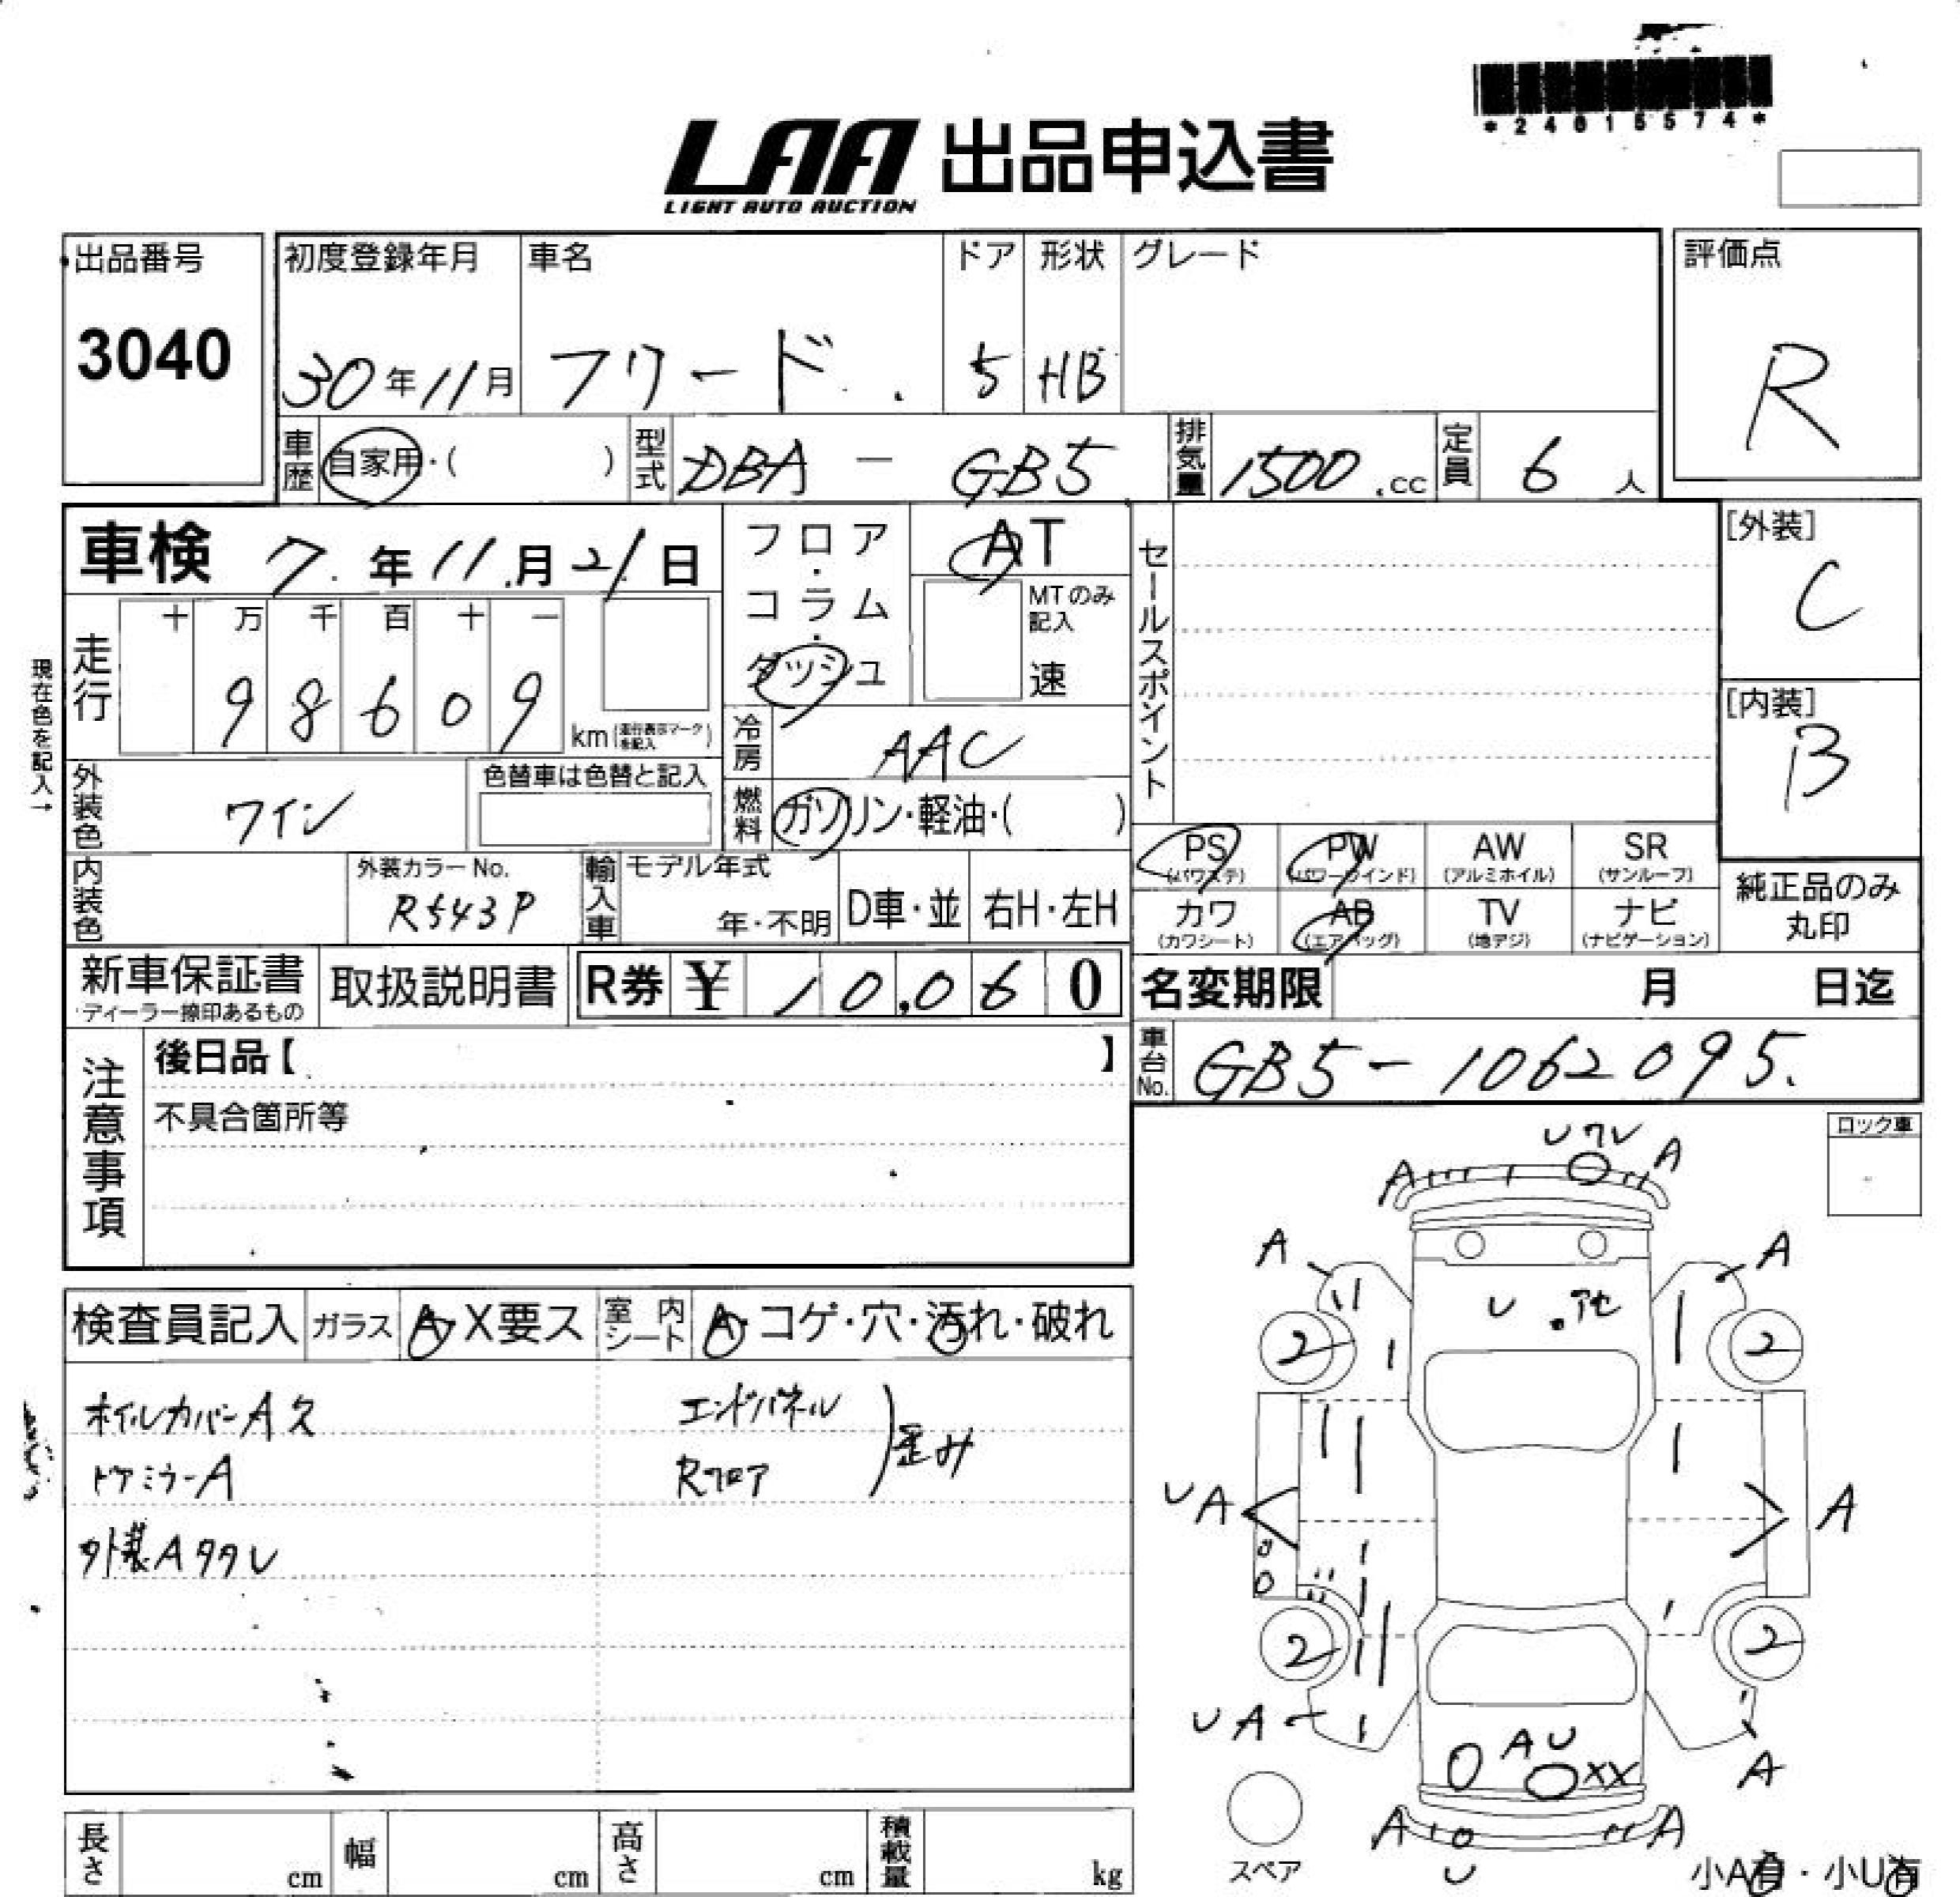 *24015574*
LAA 出品申込書
LIGHT AUTO AUCTION
出品番号
3040
初度登録年月 車名 ドア 形状 グレード
30年11月 フリード 5 HB
評価点
R
車歴 自家用・( ) 型式 DBA - GB5 排気量 1500.cc 定員 6人
車検 7.年11.月21.日
フロア・コラム・ダッシュ
AT
MTのみ記入
速
セールスポイント
[外装]
C
[内装]
B
現在色を記入→
走行 十 万 千 百 十 一
9 8 6 0 9 km(走行表示マークを記入)
冷房 AAC
外装色 ワイン 色替車は色替と記入
燃料 ガソリン・軽油・( )
PS (パワステ) PW (パワーウインド) AW (アルミホイル) SR (サンルーフ)
カワ (カワシート) AB (エアバッグ) TV (地デジ) ナビ (ナビゲーション)
純正品のみ
丸印
内装色 外装カラーNo. R543P 輸入車 モデル年式 年・不明 D車・並 右H・左H
新車保証書 取扱説明書 R券 ¥ 10,060
名変期限 月 日迄
車台No. GB5-1062095.
注意事項
後日品【 】
不具合箇所等
ロック車
検査員記入 ガラス A・X要ス 室内シート A・コゲ・穴・汚れ・破れ
ホイルカバーA欠 エンドパネル
ドアミラーA Rフロア
歪み
外装A多々U
U ワレ
A A
A A
U
2 2
UA A
2 2
UA
AU
XX A
A A
U
スペア
小A有・小U有
長さ cm 幅 cm 高さ cm 積載量 kg